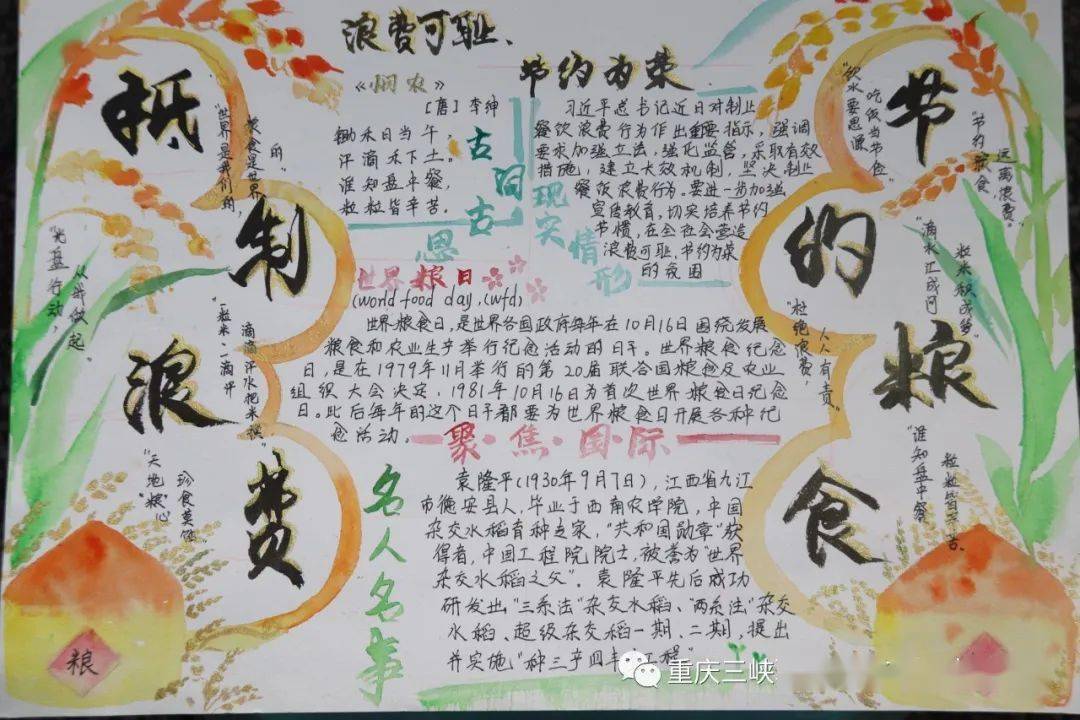 浪费可耻、
节约为荣
抵制浪费
节约粮食
《悯农》
[唐]李绅
锄禾日当午,
汗滴禾下土。
谁知盘中餐,
粒粒皆辛苦。
古词古恩
现实情形
习近平总书记近日对制止
餐饮浪费行为作出重要指示,强调
要求加强立法,强化监管,采取有效
措施,建立大效机制,坚决制止
餐饮浪费行为。要进一步加强
宣传教育,切实培养节约
节惯,在全社会营造
浪费可耻、节约为荣
的氛围
"世界是我们的,
粮食是世界的"
"光盘行动,
从我做起"
"一粒米·一滴汗
滴滴汗水把米换"
"天地"粮"心
珍食莫任"
"饮水要思源
吃饭当节俭"
"节约粮食,
远离浪费。"
"滴水汇成河
粒米积成箩"
"杜绝浪费,
人人有责"
"谁知盘中餐
粒粒皆辛苦。
世界粮日
(world food day,(wfd)
世界粮食日,是世界各国政府每年在10月16日围绕发展
粮食和农业生产举行纪念活动的日子。世界粮食纪念
日,是在1979年11月举行的第20届联合国粮食及农业
组织大会决定,1981年10月16日为首次世界粮食日纪念
日。此后每年的这个日子都要为世界粮食日开展各种纪
念活动.
聚·焦·国·际
名人名事
袁隆平(1930年9月7日),江西省九江
市德安县人,毕业于西南农学院,中国
杂交水稻育种专家,"共和国勋章"获
得者,中国工程院院士,被誉为"世界
杂交水稻之父"。袁隆平先后成功
研发出"三系法"杂交水稻、"两系法"杂交
水稻、超级杂交稻一期、二期,提出
并实施"种三产四丰工程"
粮
重庆三峡